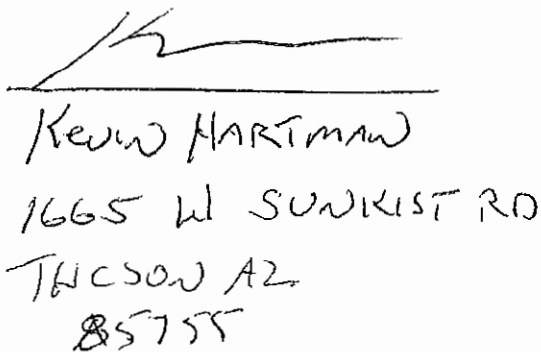 Kevin HARTMAN
1665 W SUNKIST RD
TUCSON AZ
85755